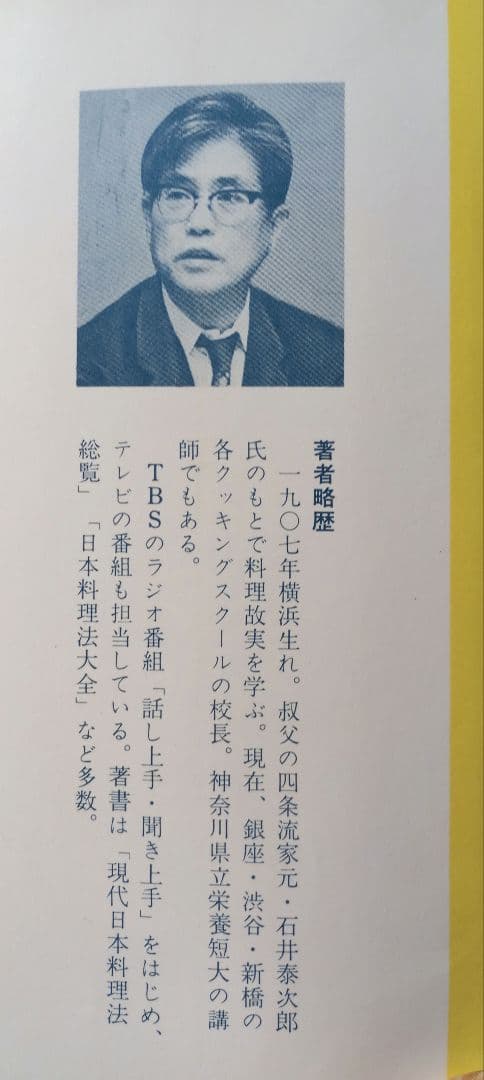 著者略歴
一九〇七年横浜生れ。叔父の四条流家元・石井泰次郎
氏のもとで料理故実を学ぶ。現在、銀座・渋谷・新橋の
各クッキングスクールの校長。神奈川県立栄養短大の講
師でもある。
TBSのラジオ番組「話し上手・聞き上手」をはじめ、
テレビの番組も担当している。著書は「現代日本料理法
総覧」「日本料理法大全」など多数。